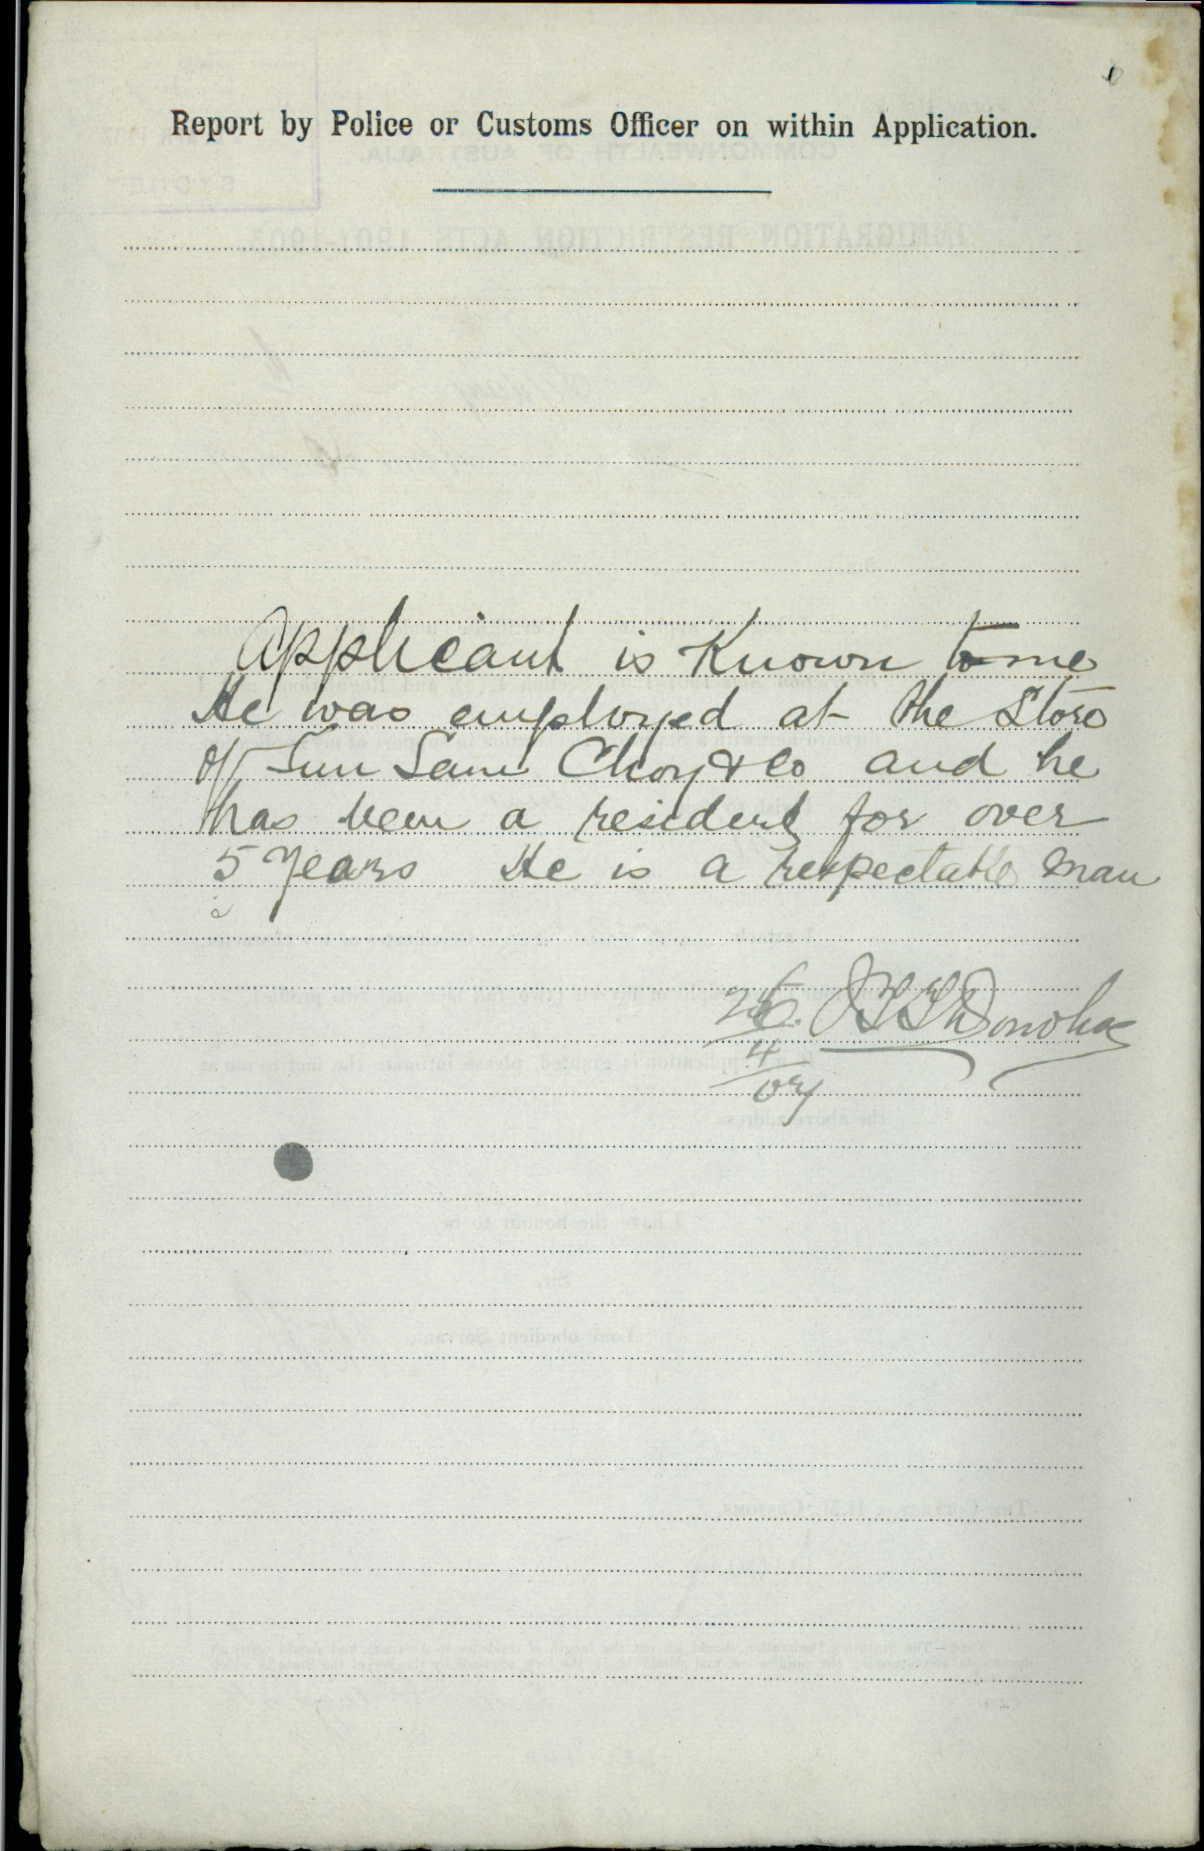 Report by Police or Customs Officer on within Application.
Applicant is Known to me
He was employed at the Store
of Sun Sam Choy & Co and he
has been a resident for over
5 Years He is a respectable man
Donohoe
4
07